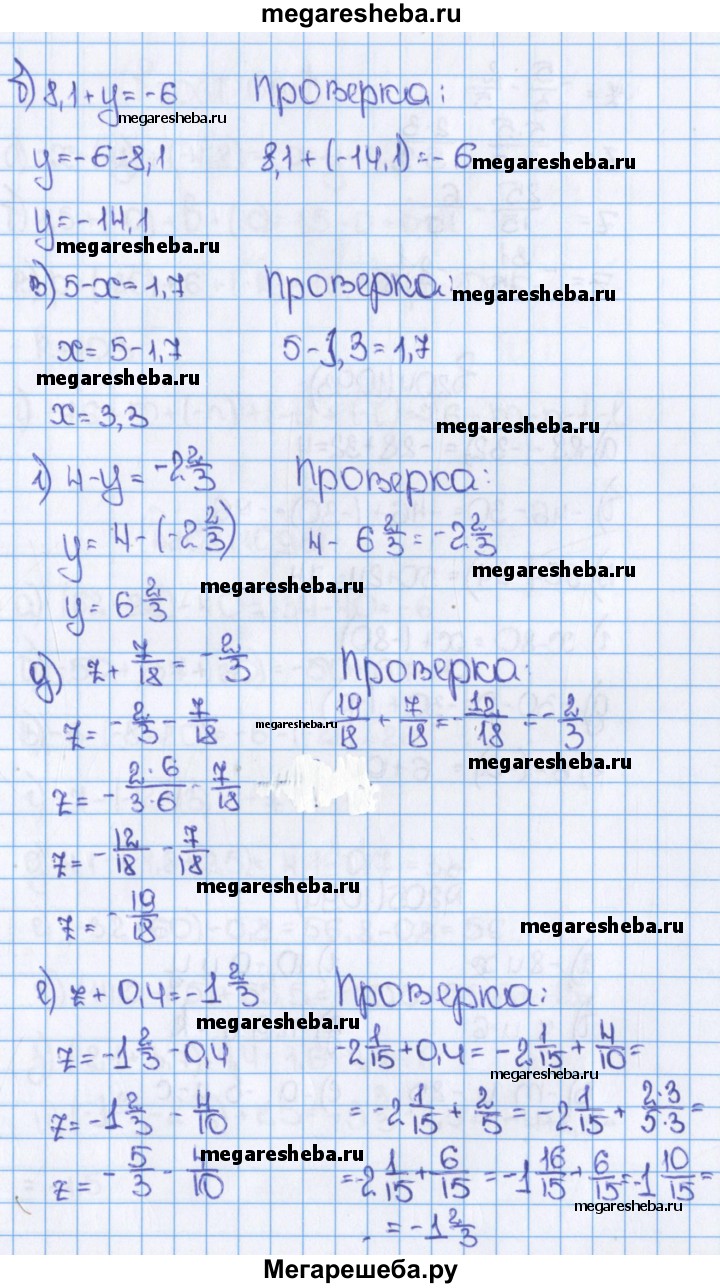 megaresheba.ru
б) 8,1 + y = -6 Проверка:
megaresheba.ru
y = -6 - 8,1 8,1 + (-14,1) = -6 megaresheba.ru
y = -14,1
megaresheba.ru
в) 5 - x = 1,7 Проверка: megaresheba.ru
x = 5 - 1,7 5 - 3,3 = 1,7
megaresheba.ru
x = 3,3 megaresheba.ru
г) 4 - y = -2 2/3 Проверка:
y = 4 - (-2 2/3) 4 - 6 2/3 = -2 2/3
megaresheba.ru megaresheba.ru
y = 6 2/3
д) z + 7/18 = -2/3 Проверка:
z = -2/3 - 7/18 megaresheba.ru 19/18 + 7/18 = -12/18 = -2/3
megaresheba.ru
z = - 2·6/3·6 - 7/18
z = -12/18 - 7/18
megaresheba.ru
z = -19/18 megaresheba.ru
е) z + 0,4 = -1 2/3 Проверка:
megaresheba.ru
z = -1 2/3 - 0,4 -2 1/15 + 0,4 = -2 1/15 + 4/10 =
megaresheba.ru
z = -1 2/3 - 4/10 = -2 1/15 + 2/5 = -2 1/15 + 2·3/5·3 =
megaresheba.ru
z = -5/3 - 4/10 = -2 1/15 + 6/15 = -1 16/15 + 6/15 = -1 10/15 =
megaresheba.ru
= -1 2/3
Мегарешеба.ру